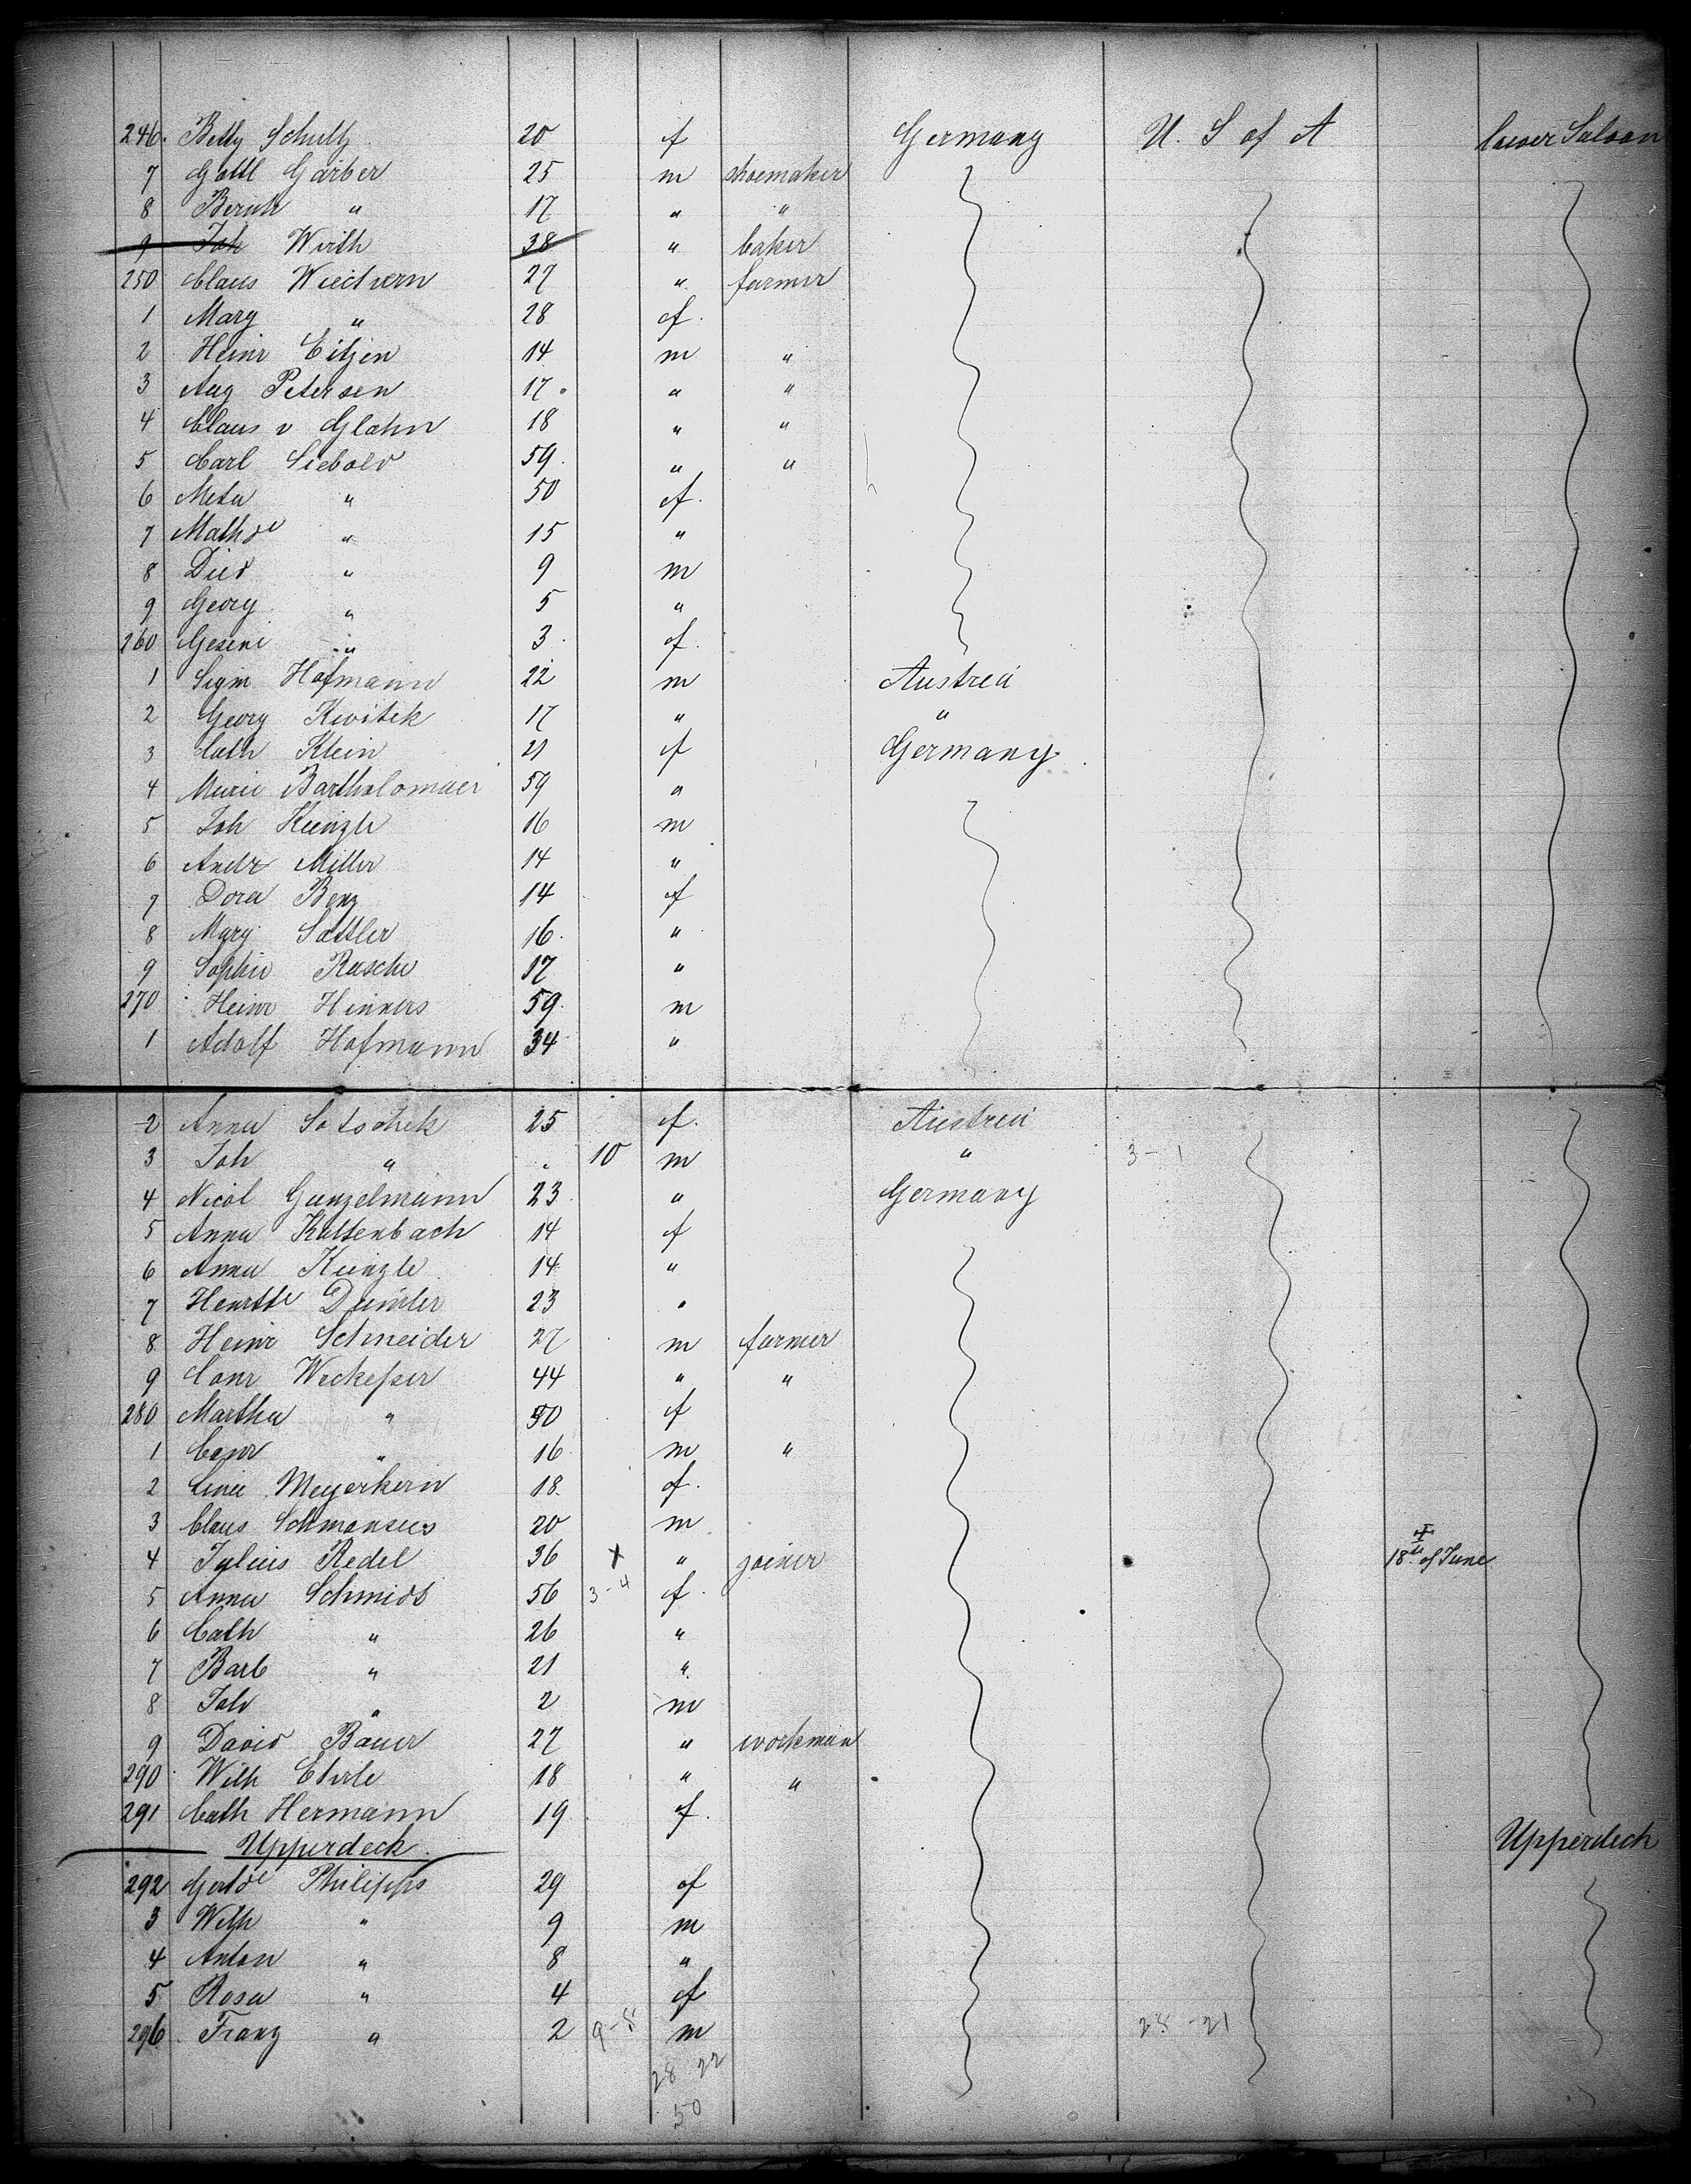 246. Betty Schultz 20 f Germany U. S of A lower Saloon
7 Gottl Gärber 25 m shoemaker
8 Bernh " 17 " "
9 Joh Wirth 38 " baker
250 Claus Wiechern 27 " farmer
1 Marg " 28 f.
2 Heinr Eitjen 14 m "
3 Aug Petersen 17. " "
4 Claus v Glahn 18 " "
5 Carl Siebold 59. " "
6 Meta " 50 f.
7 Mathde " 15 "
8 Died " 9 m
9 Georg " 5 "
260 Gesine " 3. f.
1 Sigm Hofmann 22 m Austria
2 Georg Kwitek 17 " "
3 Cath Klein 21 f Germany.
4 Marie Bartholomaer 59 "
5 Joh Künzle 16 m
6 Andr Miller 14 "
7 Dora Benz 14 f
8 Marg Sattler 16. "
9 Sophie Rasche 17 "
270 Heinr Hinners 59. m
1 Adolf Hofmann 34 "
2 Anna Satschek 25 f. Austria
3 Joh " " 10 m " 3-1
4 Nicol Gunzelmann 23 " Germany
5 Anna Kaltenbach 14 f
6 Anna Künzle 14 "
7 Henrtte Deimler 23 "
8 Heinr Schneider 27 m farmer
9 Conr Weckesser 44 " "
280 Martha " 50 f
1 Conr " 16. m "
2 Line Meyerkern 18. f.
3 Claus Schmonsees 20 m
4 Julius Redel 36 x " joiner 18th of June
5 Anna Schmidt 56 3-4 f.
6 Cath " 26 "
7 Barb " 21 "
8 Joh " 2 m
9 David Bauer 27 " workman
290. Wilh Ehrle 18 " "
291 Cath Hermann 19. f.
Upperdeck. Upperdeck
292 Gertde Philipps 29 f
3 Wilh " 9 m
4 Anton " 8 "
5 Rosa " 4 f
296. Franz " 2 9-8 m 28-21
28 22
50